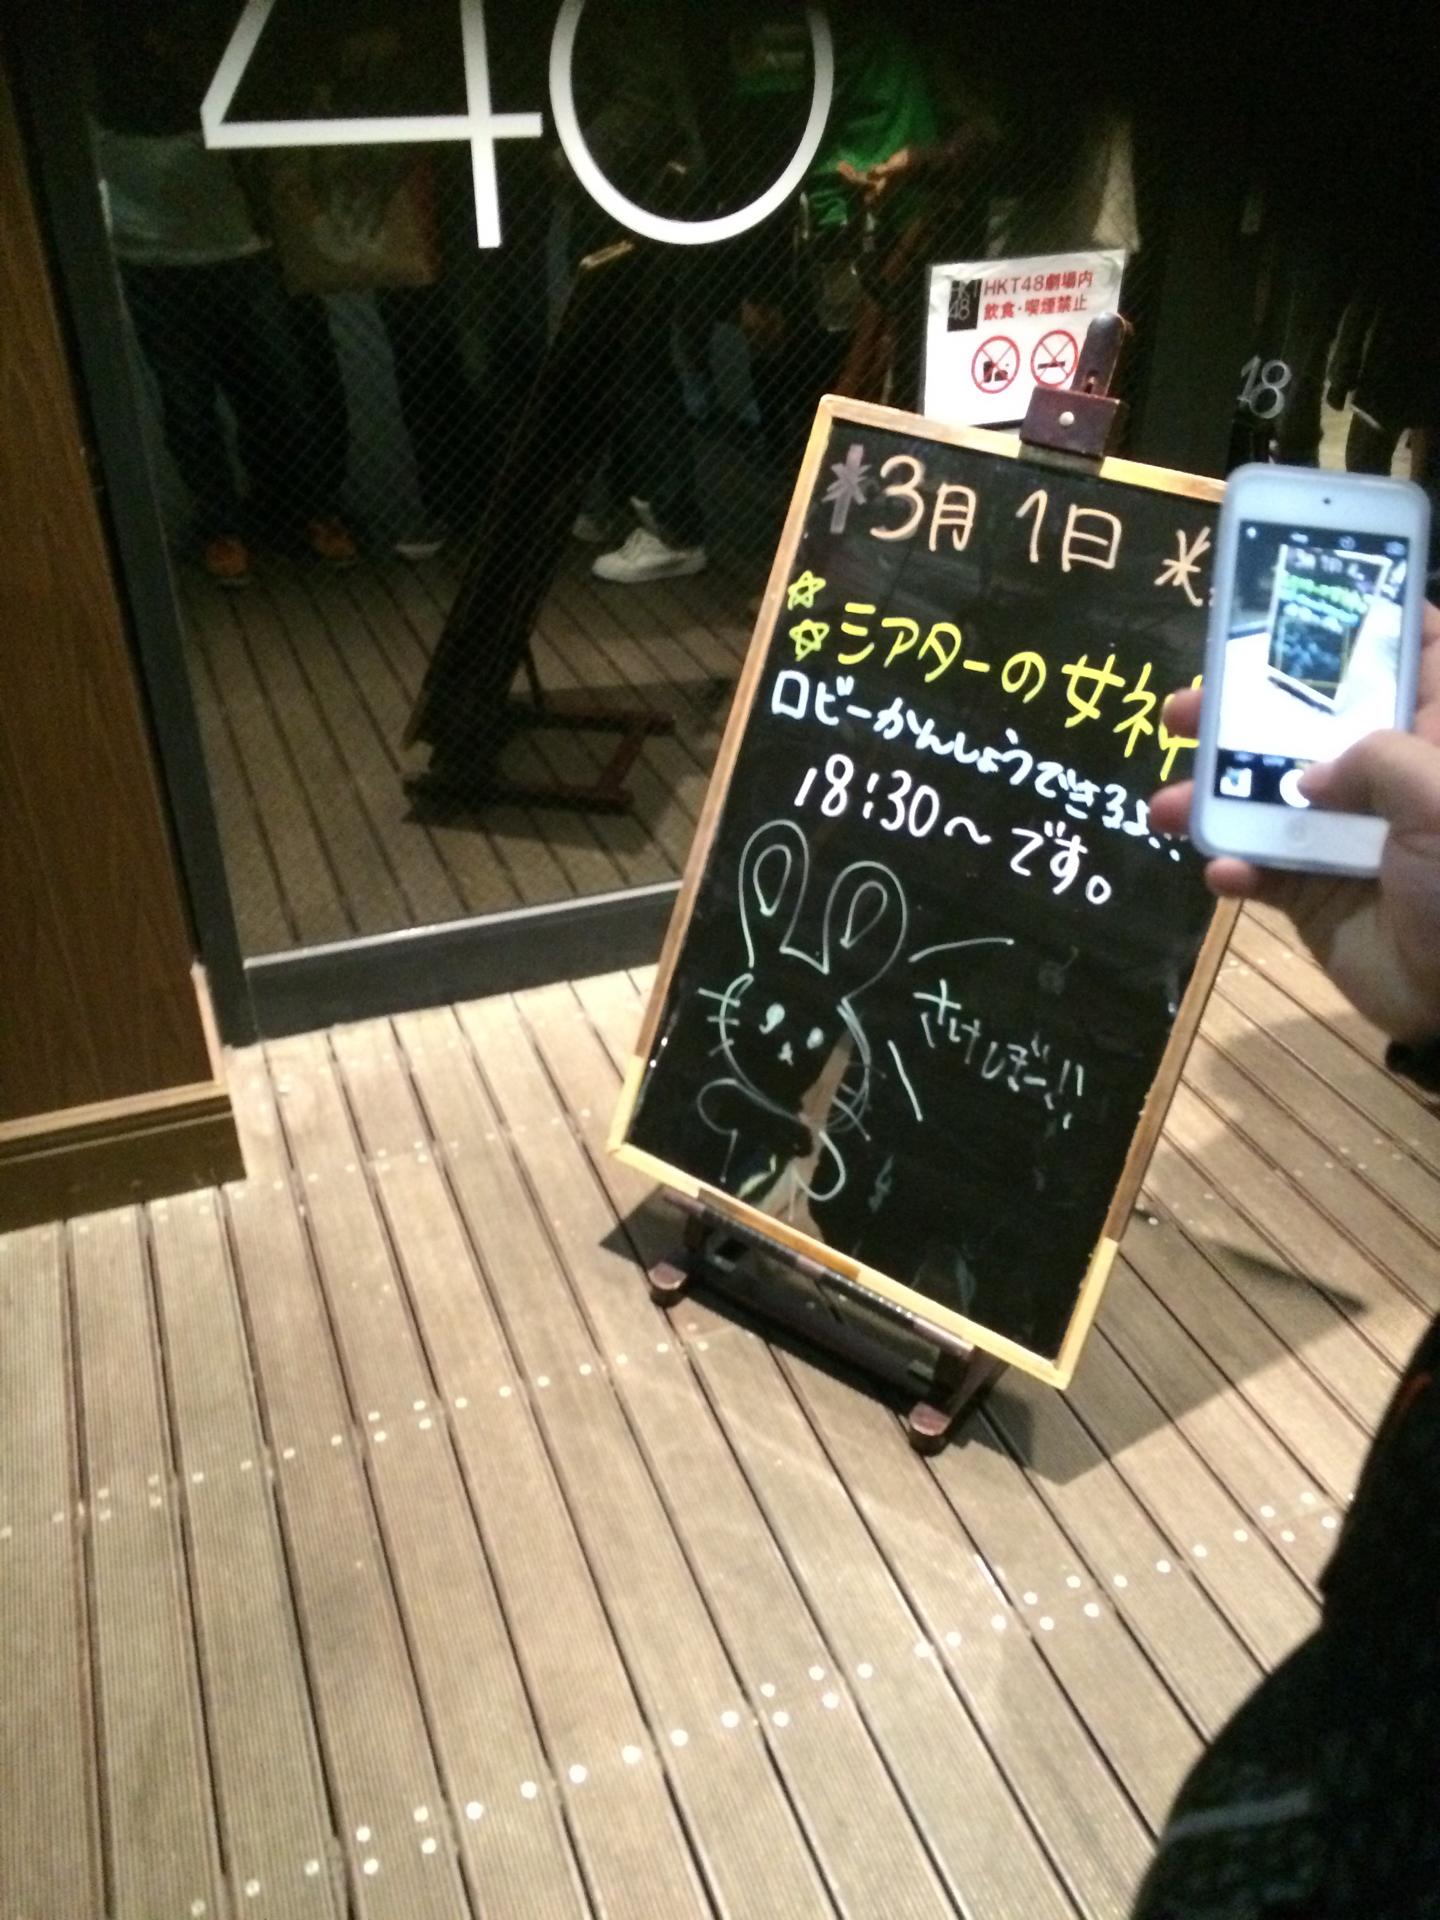 48
HKT
48
HKT48劇場内
飲食・喫煙禁止
18
3月1日
シアターの女神
ロビーかんしょうできるよ!!
18:30〜です。
さけしぎー!!